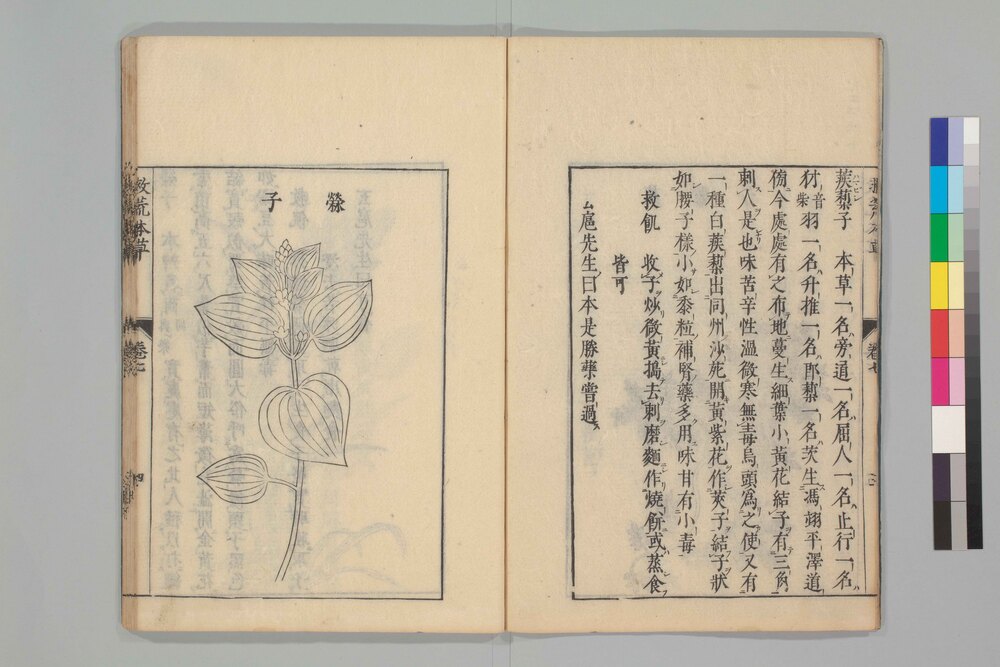 蒺藜子 本草一名旁通一名屈人一名止行一名
犲音柴羽一名升推一名卽藜一名茨生馮翊平澤道
傍今處處有之布地蔓生細葉小黃花結子有三角
刺人是也味苦辛性溫微寒無毒烏頭爲之使又有
一種白蒺藜出同州沙苑開黃紫花作莢子結子狀
如腰子樣小如黍粒補腎藥多用味甘有小毒
救飢 收子炒微黃搗去刺磨麵作燒餅或蒸食
皆可
玄扈先生曰本是勝藥嘗過
卷七
䔧子
救荒本草
卷七
四